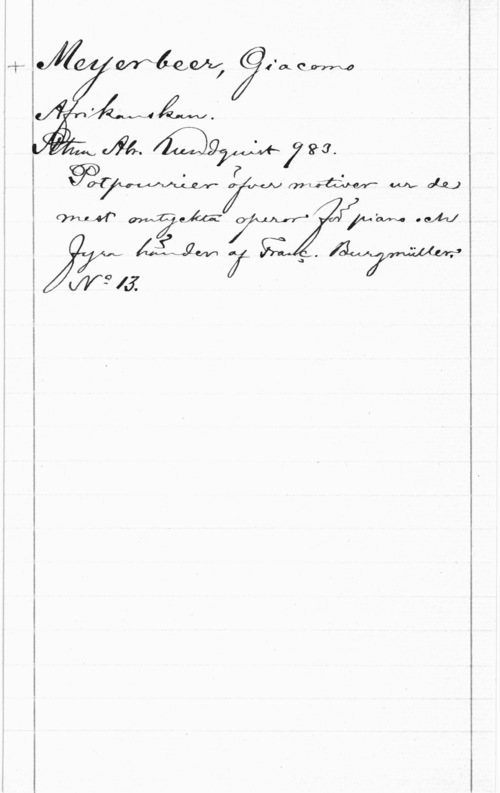 + Meyerbeer, Giacomo
Afrikanskan.
Sthm Abr. Lundquist 983.
Potpourrier öfver motiver ur de
mest omtyckta operor för piano och
fyra händer af Franç. Burgmüller.
Nº 13.